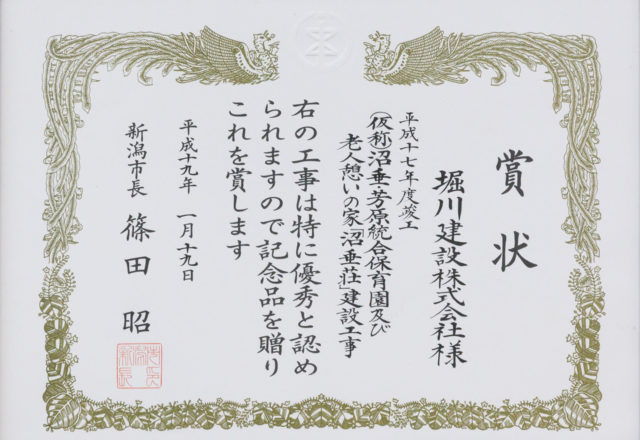 賞状
堀川建設株式会社様
平成十七年度竣工
(仮称)沼垂・芳原統合保育園及び
老人憩いの家「沼垂荘」建設工事
右の工事は特に優秀と認め
られますので記念品を贈り
これを賞します
平成十九年 一月十九日
新潟市長 篠田 昭